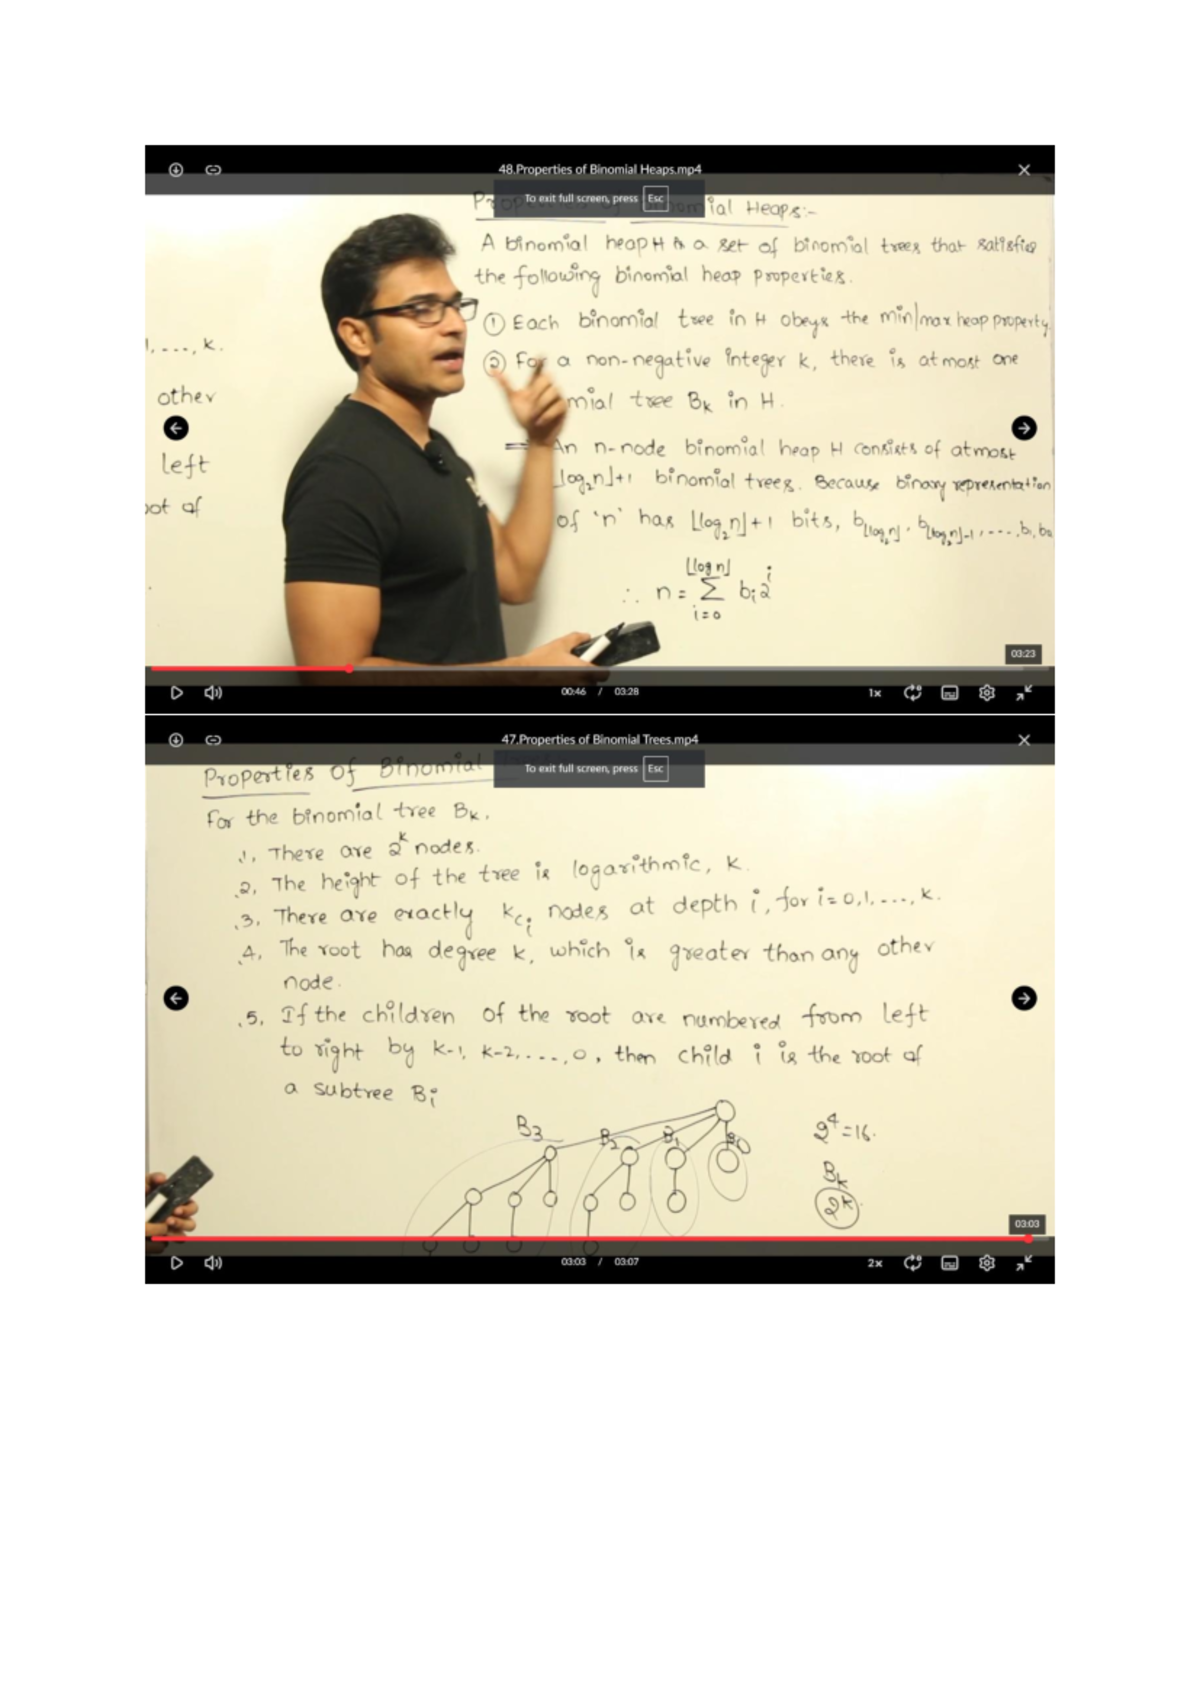 48.Properties of Binomial Heaps.mp4
To exit full screen, press Esc
ial Heaps:-
A binomial heap H is a set of binomial trees that satisfies
the following binomial heap properties.
① Each binomial tree in H obeys the min/max heap property.
② For a non-negative integer k, there is atmost one
mial tree Bₖ in H.
⇒ An n-node binomial heap H consists of atmost
⌊log₂n⌋+1 binomial trees. Because binary representation
of 'n' has ⌊log₂n⌋+1 bits, b⌊log₂n⌋, b⌊log₂n⌋-1, ...., b₁, b₀
∴ n = ∑ bᵢ2ⁱ
⌊log n⌋
i=0
1, ..., k.
other
left
oot of
03:23
00:46 / 03:28
1x
47.Properties of Binomial Trees.mp4
To exit full screen, press Esc
Properties of Binomial
For the binomial tree Bₖ.
1. There are 2ᵏ nodes.
2. The height of the tree is logarithmic, k.
3. There are exactly kcᵢ nodes at depth i, for i=0,1,...., k.
4. The root has degree k, which is greater than any other
node.
5. If the children of the root are numbered from left
to right by k-1, k-2, ...., 0, then child i is the root of
a subtree Bᵢ
B₃ B₂ B₁ B₀
2⁴=16.
Bₖ
2ᵏ
03:03
03:03 / 03:07
2x